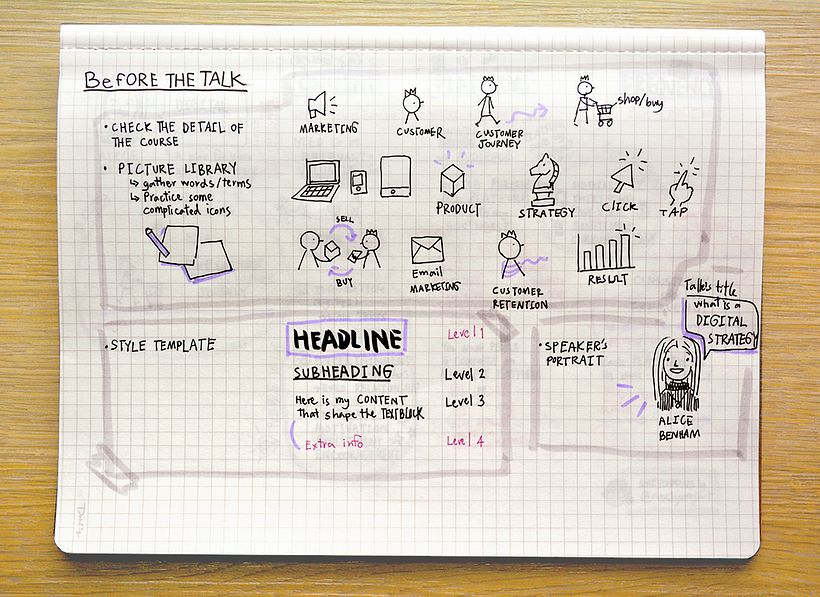 BeFORE THE TALK
• CHECK THE DETAIL OF
THE COURSE
• PICTURE LIBRARY
↳ gather words/terms
↳ Practice some
complicated icons
MARKETING
CUSTOMER
CUSTOMER
JOURNEY
shop/buy
PRODUCT
STRATEGY
CLICK
TAP
SELL
BUY
Email
MARKETING
CUSTOMER
RETENTION
RESULT
• STYLE TEMPLATE
HEADLINE
Level 1
SUBHEADING
Level 2
Here is my CONTENT
that shape the TEXT BLOCK
Level 3
Extra info
Level 4
• SPEAKER'S
PORTRAIT
Talk's title
what is a
DIGITAL
STRATEGY
ALICE
BENHAM